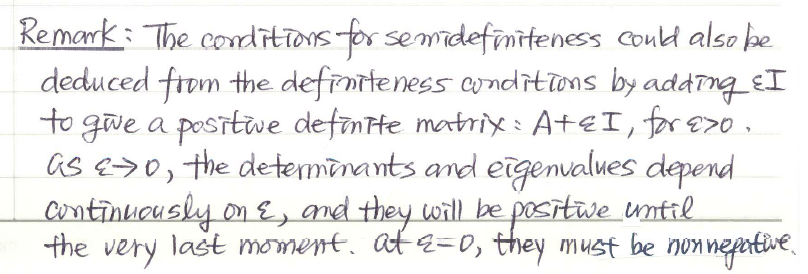 Remark: The conditions for semidefiniteness could also be
deduced from the definiteness conditions by adding εI
to give a positive definite matrix: A+εI, for ε>0.
as ε→0, the determinants and eigenvalues depend
continuously on ε, and they will be positive until
the very last moment. at ε=0, they must be nonnegative.